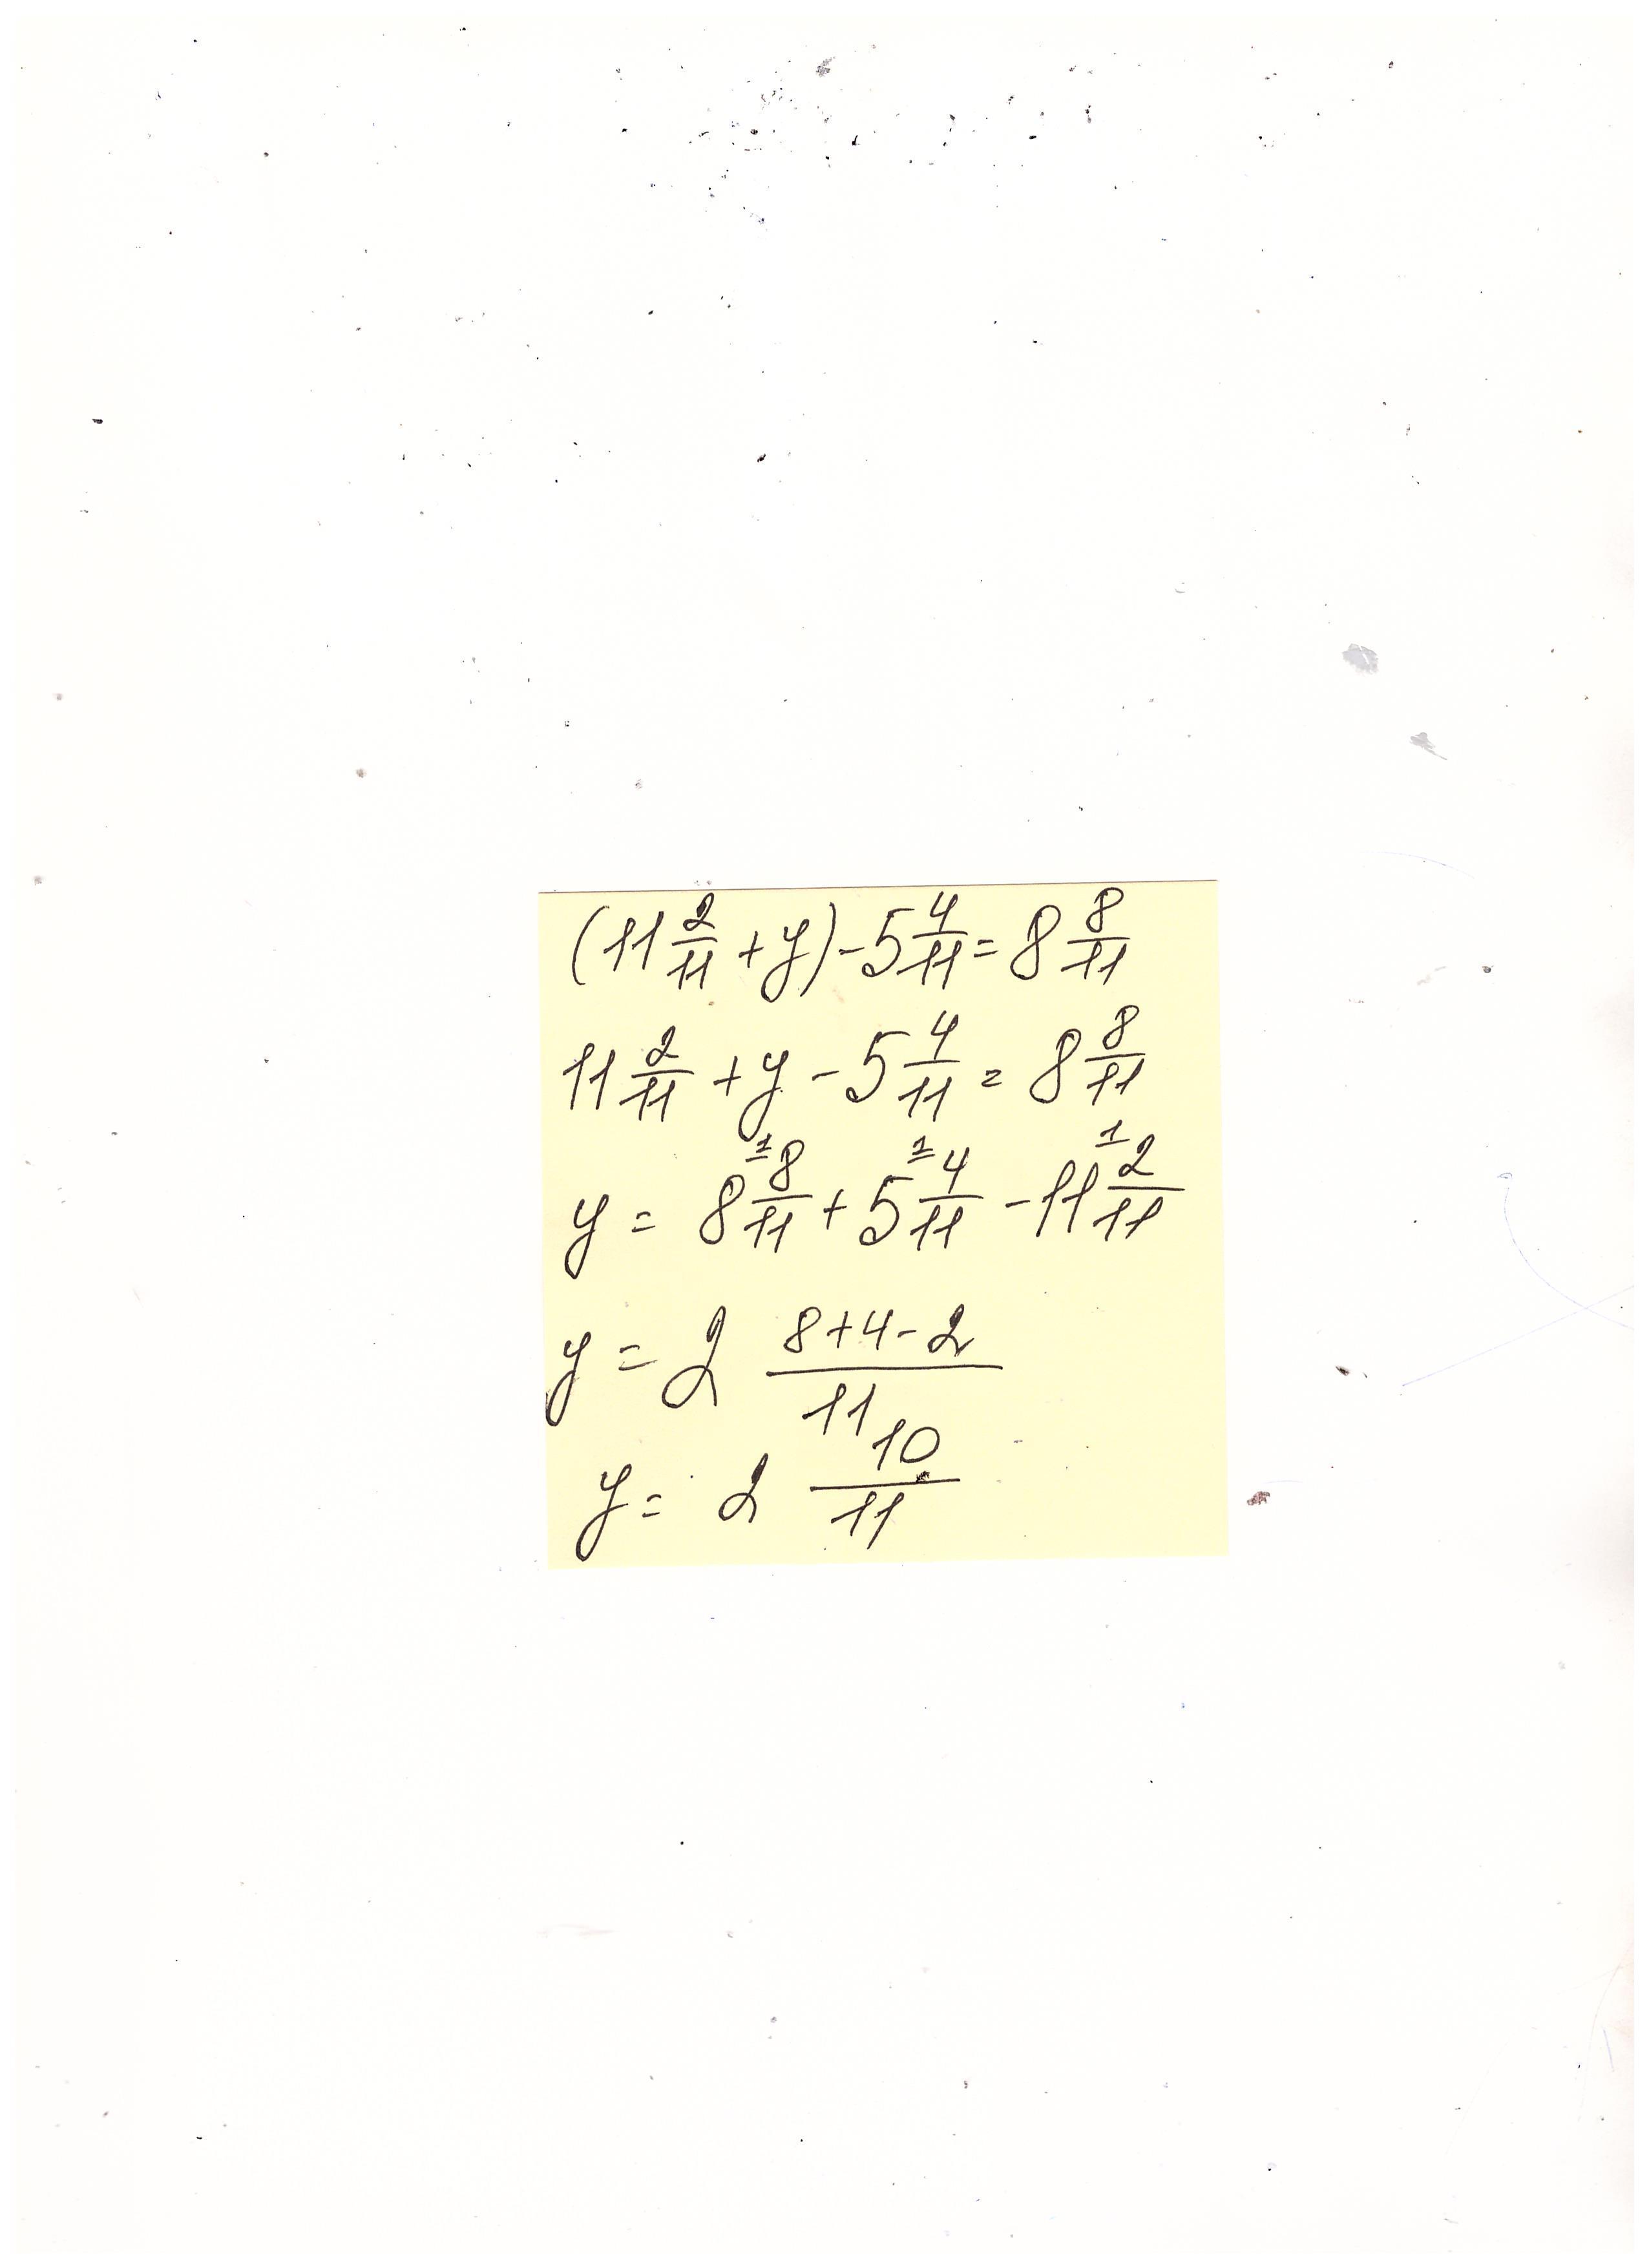 (11 2/11 + y) - 5 4/11 = 8 8/11
11 2/11 + y - 5 4/11 = 8 8/11
y = 8 8/11 + 5 4/11 - 11 2/11
y = 2 (8+4-2)/11
y = 2 10/11